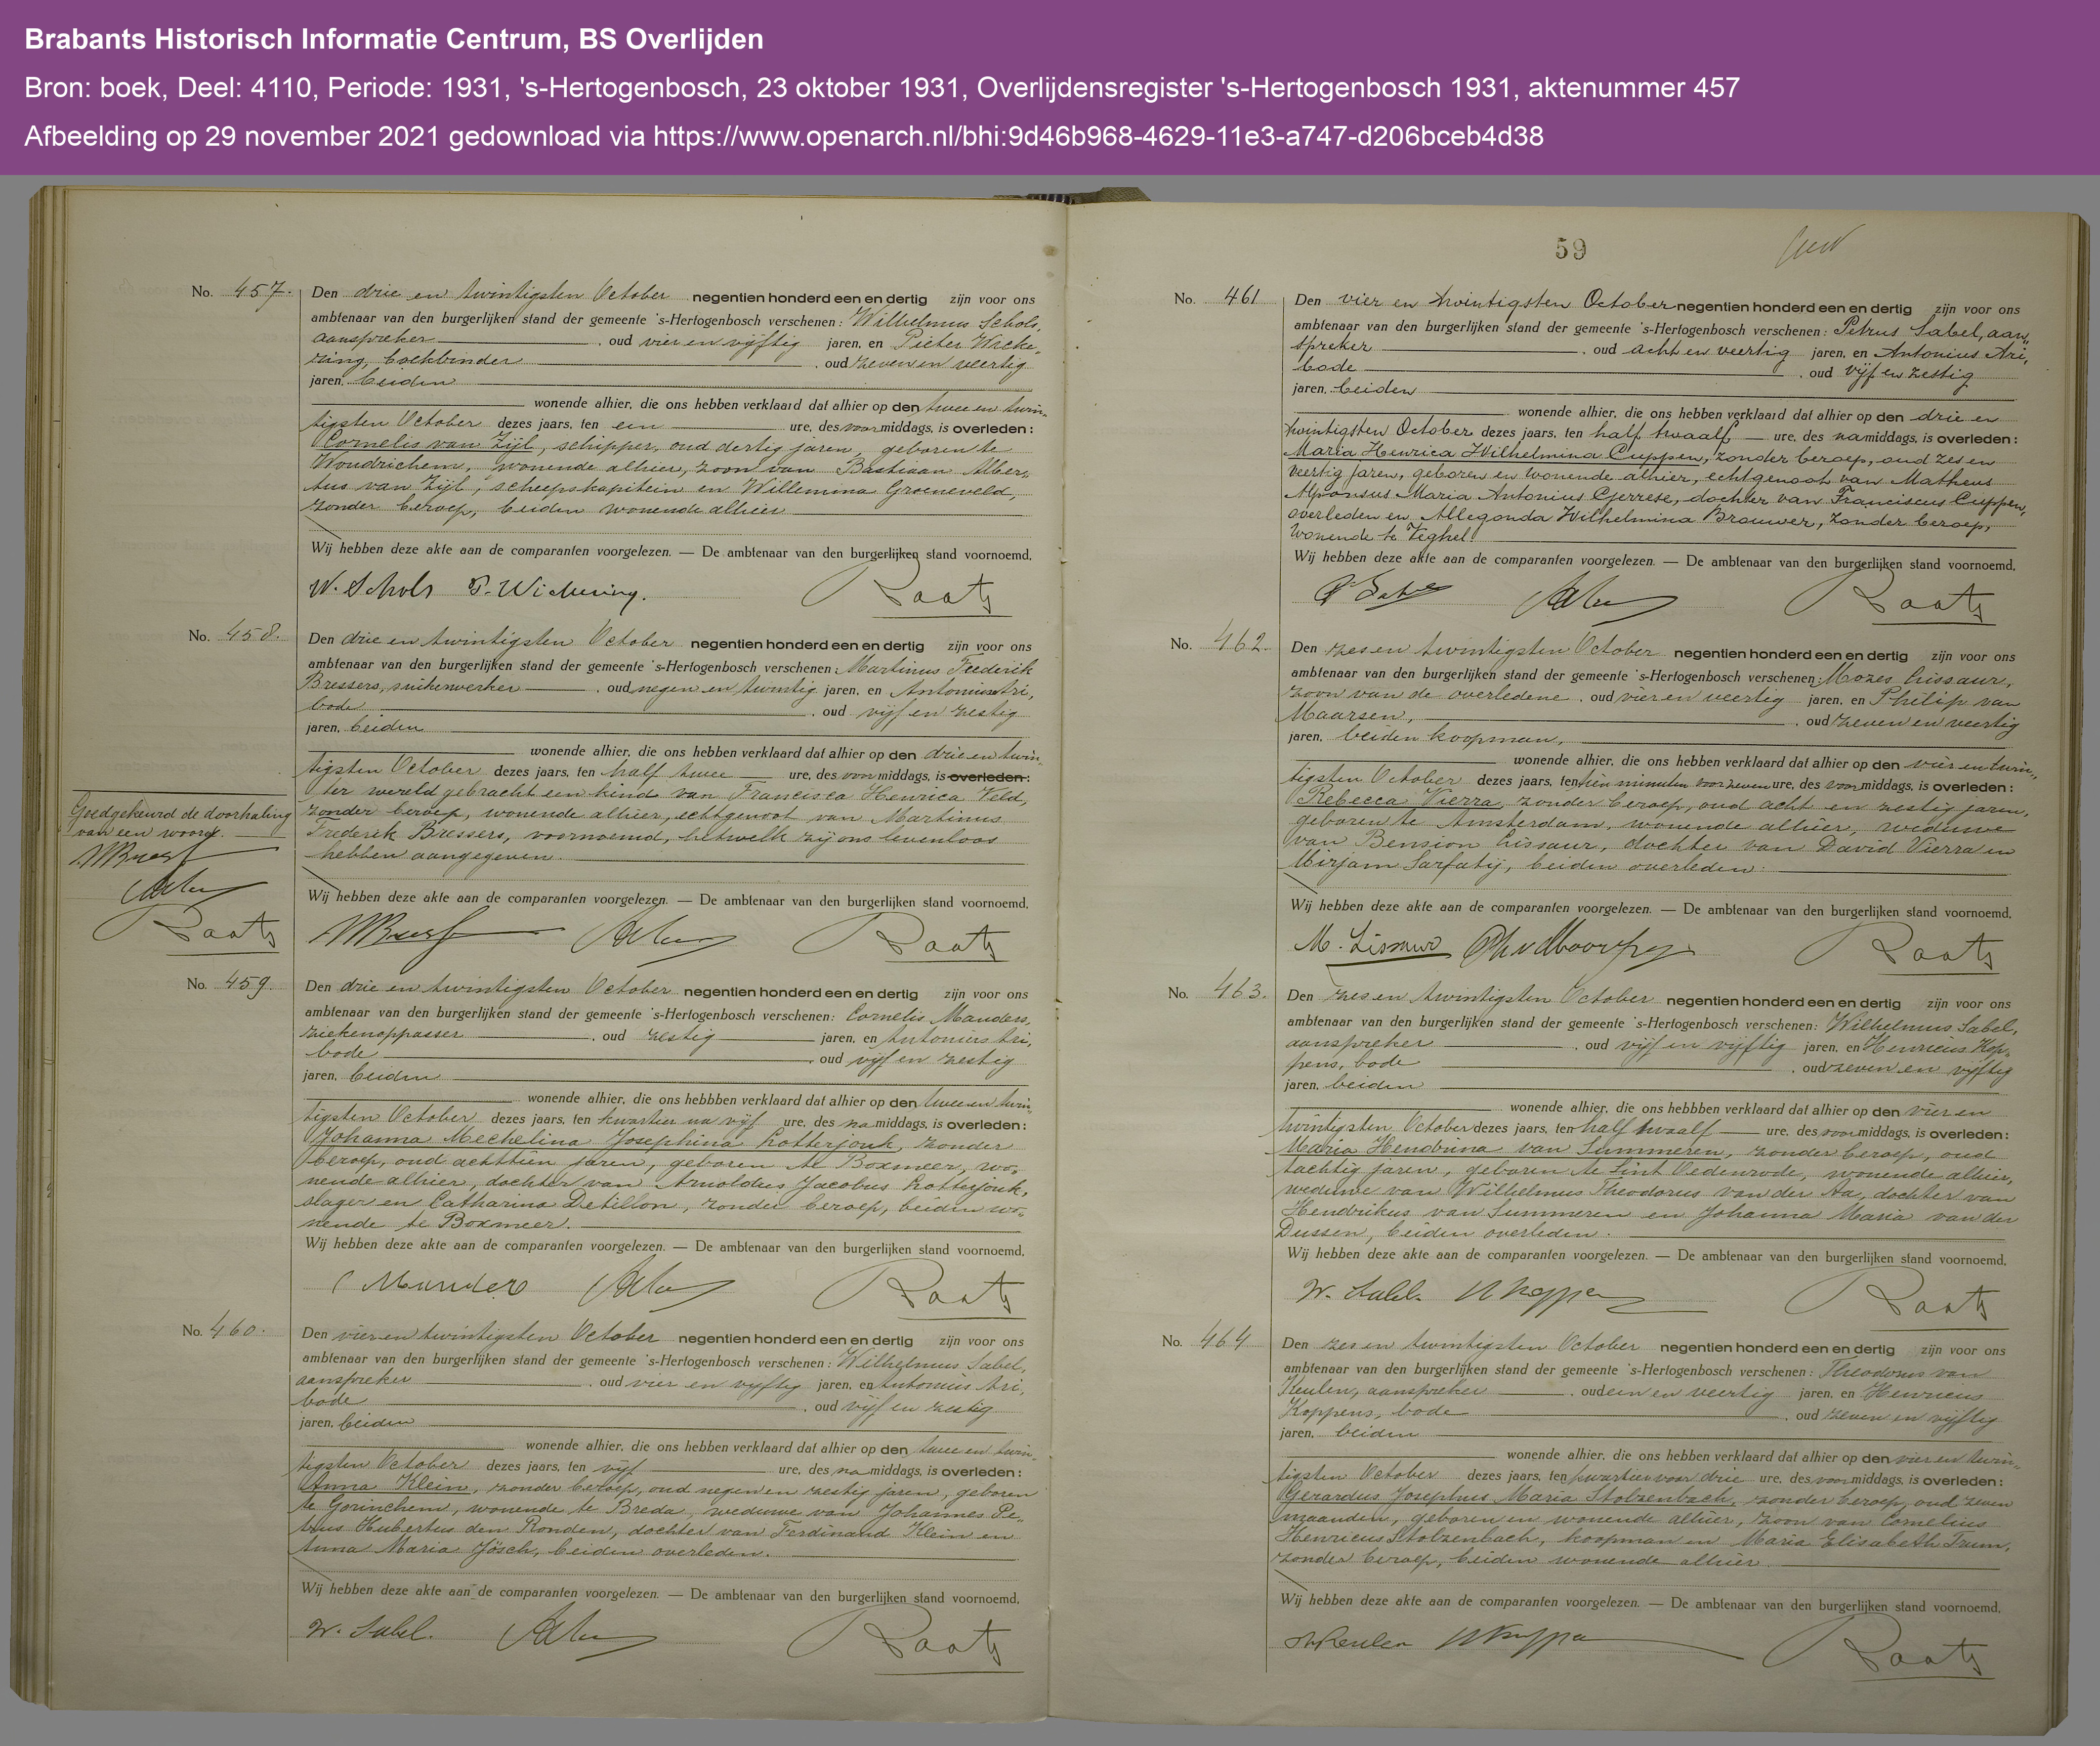 Brabants Historisch Informatie Centrum, BS Overlijden
Bron: boek, Deel: 4110, Periode: 1931, 's-Hertogenbosch, 23 oktober 1931, Overlijdensregister 's-Hertogenbosch 1931, aktenummer 457
Afbeelding op 29 november 2021 gedownload via https://www.openarch.nl/bhi:9d46b968-4629-11e3-a747-d206bceb4d38
No. 457.
Den drie en twintigsten October negentien honderd een en dertig zijn voor ons
ambtenaar van den burgerlijken stand der gemeente 's-Hertogenbosch verschenen: Wilhelmus Schols,
aanspreker , oud vier en vijftig jaren, en Pieter Wicke-
ring, boekbinder , oud zeven en veertig
jaren, beiden
wonende alhier, die ons hebben verklaard dat alhier op den twee en twin-
tigsten October dezes jaars, ten een ure, des voormiddags, is overleden:
Cornelis van Zijl, schipper, oud dertig jaren, geboren te
Woudrichem, wonende alhier, zoon van Bastiaan Alber-
tus van Zijl, scheepskapitein en Willemina Groeneveld,
zonder beroep, beiden wonende alhier
Wij hebben deze akte aan de comparanten voorgelezen. — De ambtenaar van den burgerlijken stand voornoemd.
W. Schols P. Wickering. Raats
No. 458.
Den drie en twintigsten October negentien honderd een en dertig zijn voor ons
ambtenaar van den burgerlijken stand der gemeente 's-Hertogenbosch verschenen: Martinus Frederik
Bressers, suikerwerker , oud negen en twintig jaren, en Antonius Ari,
bode , oud vijf en zestig
jaren, beiden
wonende alhier, die ons hebben verklaard dat alhier op den drie en twin-
tigsten October dezes jaars, ten half twee ure, des voormiddags, is overleden:
ter wereld gebracht een kind van Francisca Henrica Veld,
zonder beroep, wonende alhier, echtgenoot van Martinus
Frederik Bressers, voornoemd, hetwelk zij ons levenloos
hebben aangegeven.
Goedgekeurd de doorhaling
van een woord.
Raats
Wij hebben deze akte aan de comparanten voorgelezen. — De ambtenaar van den burgerlijken stand voornoemd.
Raats
No. 459.
Den drie en twintigsten October negentien honderd een en dertig zijn voor ons
ambtenaar van den burgerlijken stand der gemeente 's-Hertogenbosch verschenen: Cornelis Manders,
ziekenoppasser , oud zestig jaren, en Antonius Ari,
bode , oud vijf en zestig
jaren, beiden
wonende alhier, die ons hebbben verklaard dat alhier op den twee en twin-
tigsten October dezes jaars, ten kwartier na vijf ure, des namiddags, is overleden:
Johanna Mechelina Josephina Lotterjonk, zonder
beroep, oud achttien jaren, geboren te Boxmeer, wo-
nende alhier, dochter van Arnoldus Jacobus Lotterjonk,
slager en Catharina Detillon, zonder beroep, beiden wo-
nende te Boxmeer.
Wij hebben deze akte aan de comparanten voorgelezen. — De ambtenaar van den burgerlijken stand voornoemd.
C Manders Raats
No. 460.
Den vier en twintigsten October negentien honderd een en dertig zijn voor ons
ambtenaar van den burgerlijken stand der gemeente 's-Hertogenbosch verschenen: Wilhelmus Sabel,
aanspreker , oud vier en vijftig jaren, en Antonius Ari,
bode , oud vijf en zestig
jaren, beiden
wonende alhier, die ons hebben verklaard dat alhier op den twee en twin-
tigsten October dezes jaars, ten vijf ure, des namiddags, is overleden:
Anna Klein, zonder beroep, oud negen en zestig jaren, geboren
te Gorinchem, wonende te Breda, weduwe van Johannes Pe-
trus Hubertus den Ronden, dochter van Ferdinand Klein en
Anna Maria Jösch, beiden overleden.
Wij hebben deze akte aan de comparanten voorgelezen. — De ambtenaar van den burgerlijken stand voornoemd.
W. Sabel. Raats
59
No. 461
Den vier en twintigsten October negentien honderd een en dertig zijn voor ons
ambtenaar van den burgerlijken stand der gemeente 's-Hertogenbosch verschenen: Petrus Sabel, aan-
spreker , oud acht en veertig jaren, en Antonius Ari,
bode , oud vijf en zestig
jaren, beiden
wonende alhier, die ons hebben verklaard dat alhier op den drie en
twintigsten October dezes jaars, ten half twaalf ure, des namiddags, is overleden:
Maria Henrica Wilhelmina Cuppen, zonder beroep, oud zes en
veertig jaren, geboren en wonende alhier, echtgenoot van Matheus
Alponsus Maria Antonius Gerrese, dochter van Franciscus Cuppen,
overleden en Allegonda Wilhelmina Brouwer, zonder beroep,
wonende te Veghel.
Wij hebben deze akte aan de comparanten voorgelezen. — De ambtenaar van den burgerlijken stand voornoemd.
P Sabel Raats
No. 462.
Den zes en twintigsten October negentien honderd een en dertig zijn voor ons
ambtenaar van den burgerlijken stand der gemeente 's-Hertogenbosch verschenen: Mozes Lissaur,
zoon van de overledene , oud vier en veertig jaren, en Philip van
Maarsen, , oud zeven en veertig
jaren, beiden koopman,
wonende alhier, die ons hebben verklaard dat alhier op den vier en twin-
tigsten October dezes jaars, ten tien minuten voor zeven ure, des voormiddags, is overleden:
Rebecca Vierra, zonder beroep, oud acht en zestig jaren,
geboren te Amsterdam, wonende alhier, weduwe
van Bension Lissaur, dochter van David Vierra en
Mirjam Sarfatij, beiden overleden.
Wij hebben deze akte aan de comparanten voorgelezen. — De ambtenaar van den burgerlijken stand voornoemd.
M. Lissaur Raats
No. 463.
Den zes en twintigsten October negentien honderd een en dertig zijn voor ons
ambtenaar van den burgerlijken stand der gemeente 's-Hertogenbosch verschenen: Wilhelmus Sabel,
aanspreker , oud vijf en vijftig jaren, en Henricus Kop-
pens, bode , oud zeven en vijftig
jaren, beiden
wonende alhier, die ons hebbben verklaard dat alhier op den vier en
twintigsten October dezes jaars, ten half twaalf ure, des voormiddags, is overleden:
Maria Hendrina van Summeren, zonder beroep, oud
tachtig jaren, geboren te Sint Oedenrode, wonende alhier,
weduwe van Wilhelmus Theodorus van der Aa, dochter van
Hendrikus van Summeren en Johanna Maria van der
Dussen, beiden overleden.
Wij hebben deze akte aan de comparanten voorgelezen. — De ambtenaar van den burgerlijken stand voornoemd.
W. Sabel. H Koppens Raats
No. 464
Den zes en twintigsten October negentien honderd een en dertig zijn voor ons
ambtenaar van den burgerlijken stand der gemeente 's-Hertogenbosch verschenen: Theodorus van
Keulen, aanspreker , oud een en veertig jaren, en Henricus
Koppens, bode , oud zeven en vijftig
jaren, beiden
wonende alhier, die ons hebben verklaard dat alhier op den vier en twin-
tigsten October dezes jaars, ten kwartier voor drie ure, des voormiddags, is overleden:
Gerardus Josephus Maria Stolzenbach, zonder beroep, oud zeven
maanden, geboren en wonende alhier, zoon van Cornelius
Henricus Stolzenbach, koopman en Maria Elisabeth Trum,
zonder beroep, beiden wonende alhier.
Wij hebben deze akte aan de comparanten voorgelezen. — De ambtenaar van den burgerlijken stand voornoemd.
Raats